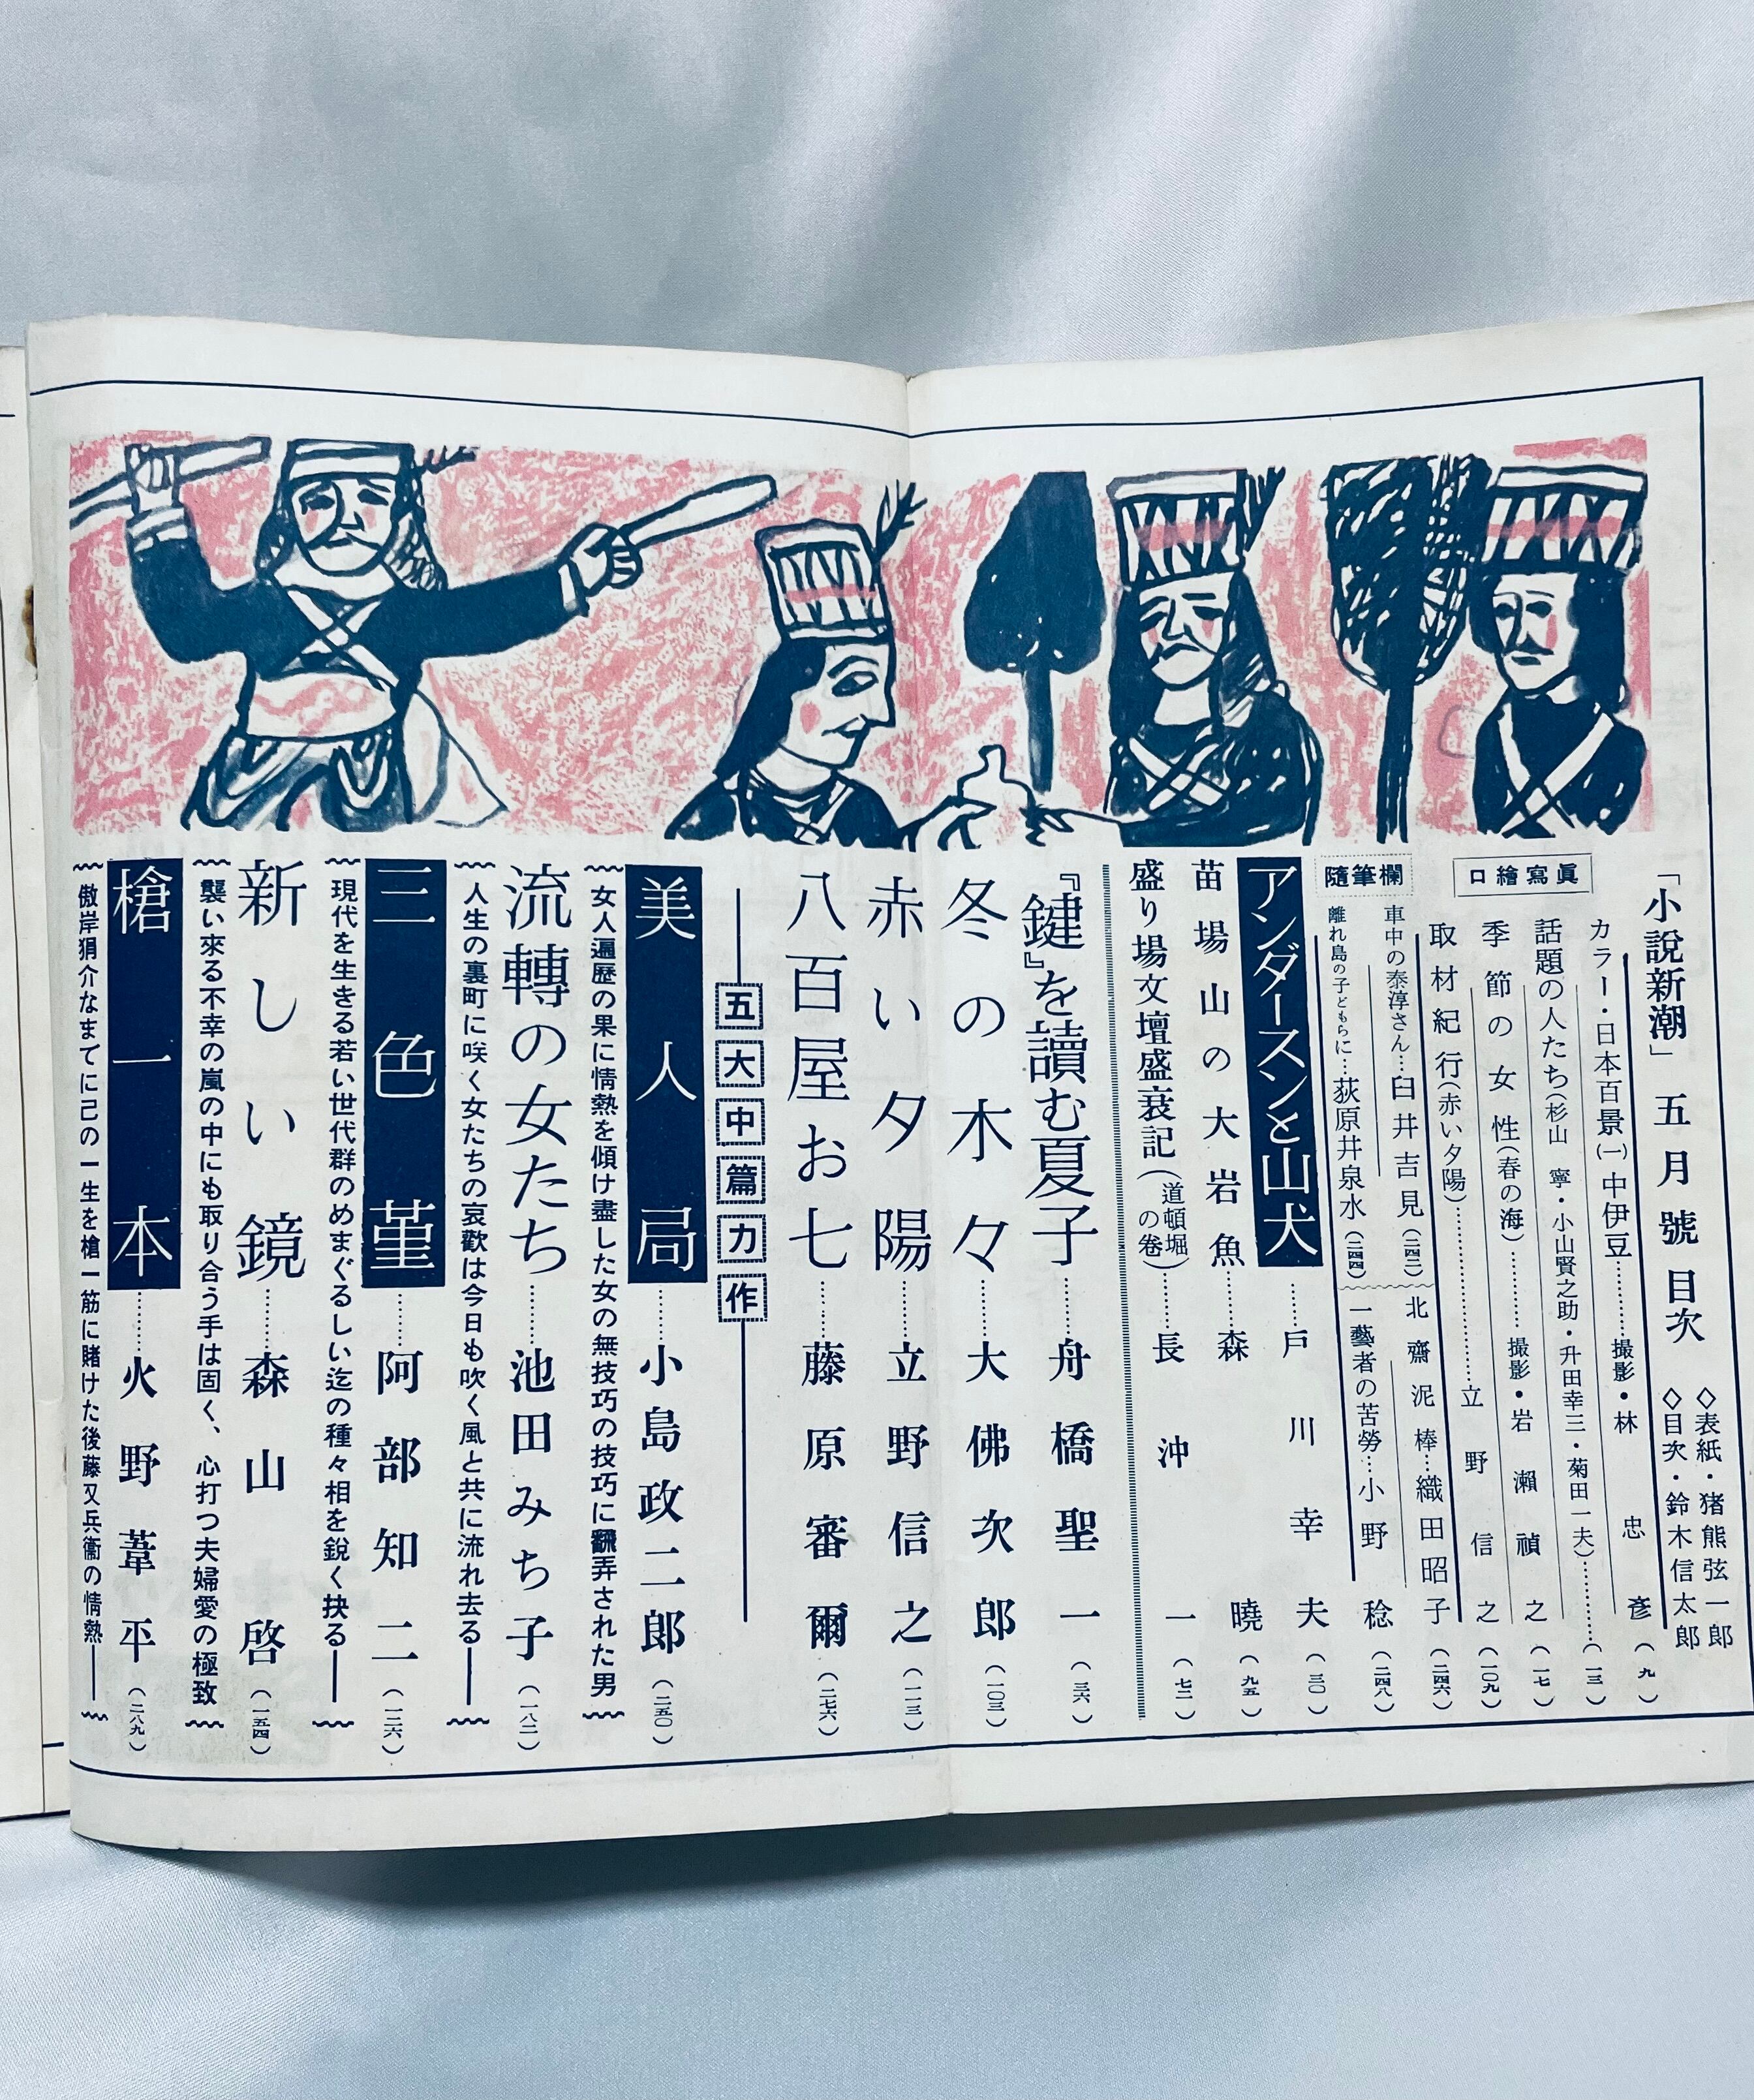 「小說新潮」五月號目次
◇表紙・猪熊弦一郎
◇目次・鈴木信太郎
口繪寫眞
カラー・日本百景(一)中伊豆…………撮影・林忠彦(九)
話題の人たち(杉山寧・小山賢之助・升田幸三・菊田一夫)…………(一三)
季節の女性(春の海)…………撮影・岩瀨禎之(一七)
取材紀行(赤い夕陽)…………立野信之(一〇九)
隨筆欄
車中の泰淳さん…臼井吉見(二四二)
北齋泥棒…織田昭子(二四六)
離れ島の子どもらに…荻原井泉水(二四四)
一藝者の苦勞…小野稔(二四八)
アンダースンと山犬……戶川幸夫(三〇)
苗場山の大岩魚……森暁(九五)
盛り場文壇盛衰記(道頓堀の卷)……長沖一(七二)
『鍵』を讀む夏子……舟橋聖一(三六)
冬の木々……大佛次郎(一〇三)
赤い夕陽……立野信之(一一三)
八百屋お七……藤原審爾(二七六)
五大中篇力作
美人局……小島政二郎(二五〇)
女人遍歷の果に情熱を傾け盡した女の無技巧の技巧に飜弄された男
流轉の女たち……池田みち子(一八二)
人生の裏町に咲く女たちの哀歡は今日も吹く風と共に流れ去る――
三色菫……阿部知二(一二六)
現代を生きる若い世代群のめまぐるしい迄の種々相を銳く抉る――
新しい鏡……森山啓(一五四)
襲い來る不幸の嵐の中にも取り合う手は固く、心打つ夫婦愛の極致
槍一本……火野葦平(二八九)
傲岸狷介なまでに己の一生を槍一筋に賭けた後藤又兵衞の情熱――